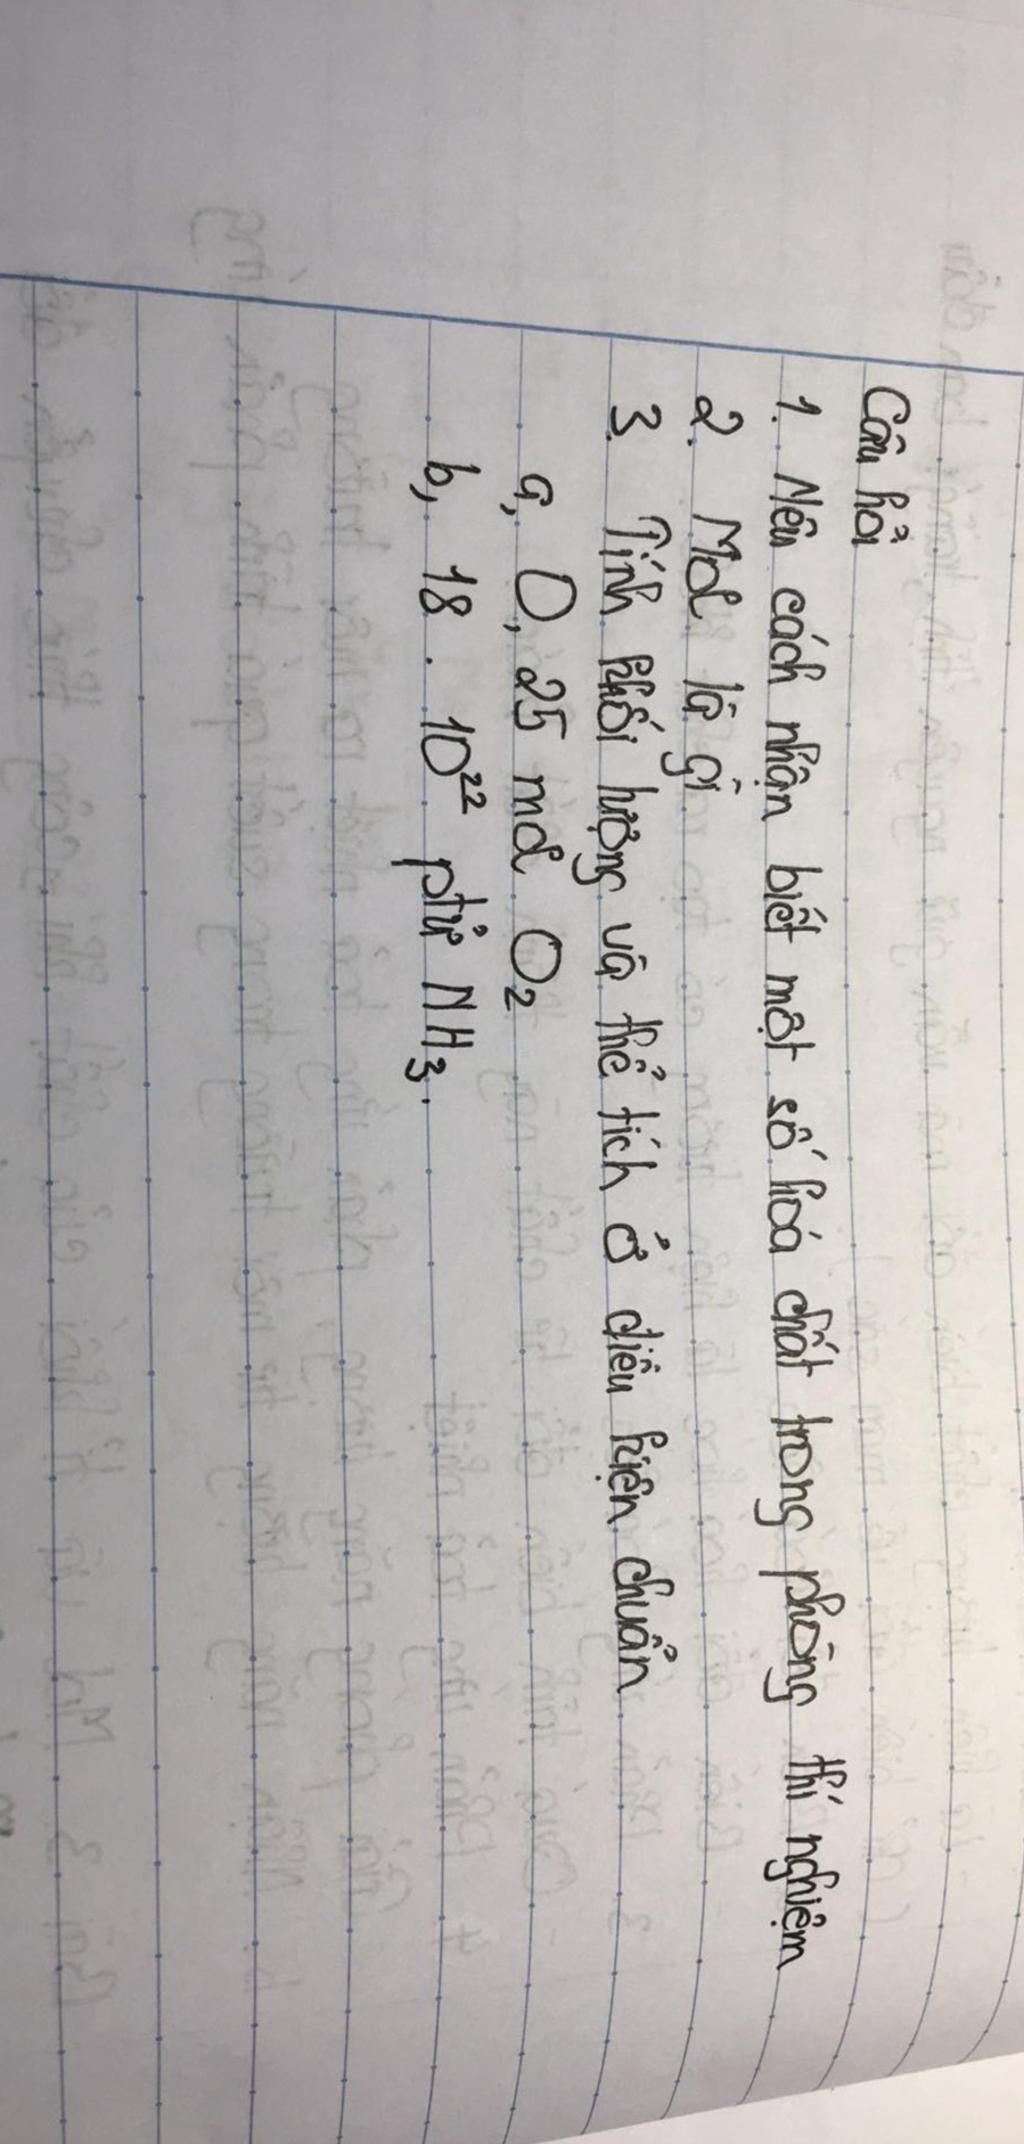 Câu hỏi
1. Nêu cách nhận biết một số hoá chất trong phòng thí nghiệm
2. Mol là gì
3. Tính khối lượng và thể tích ở điều kiện chuẩn
a, 0,25 mol O₂
b, 18 . 10²² ptử NH₃.